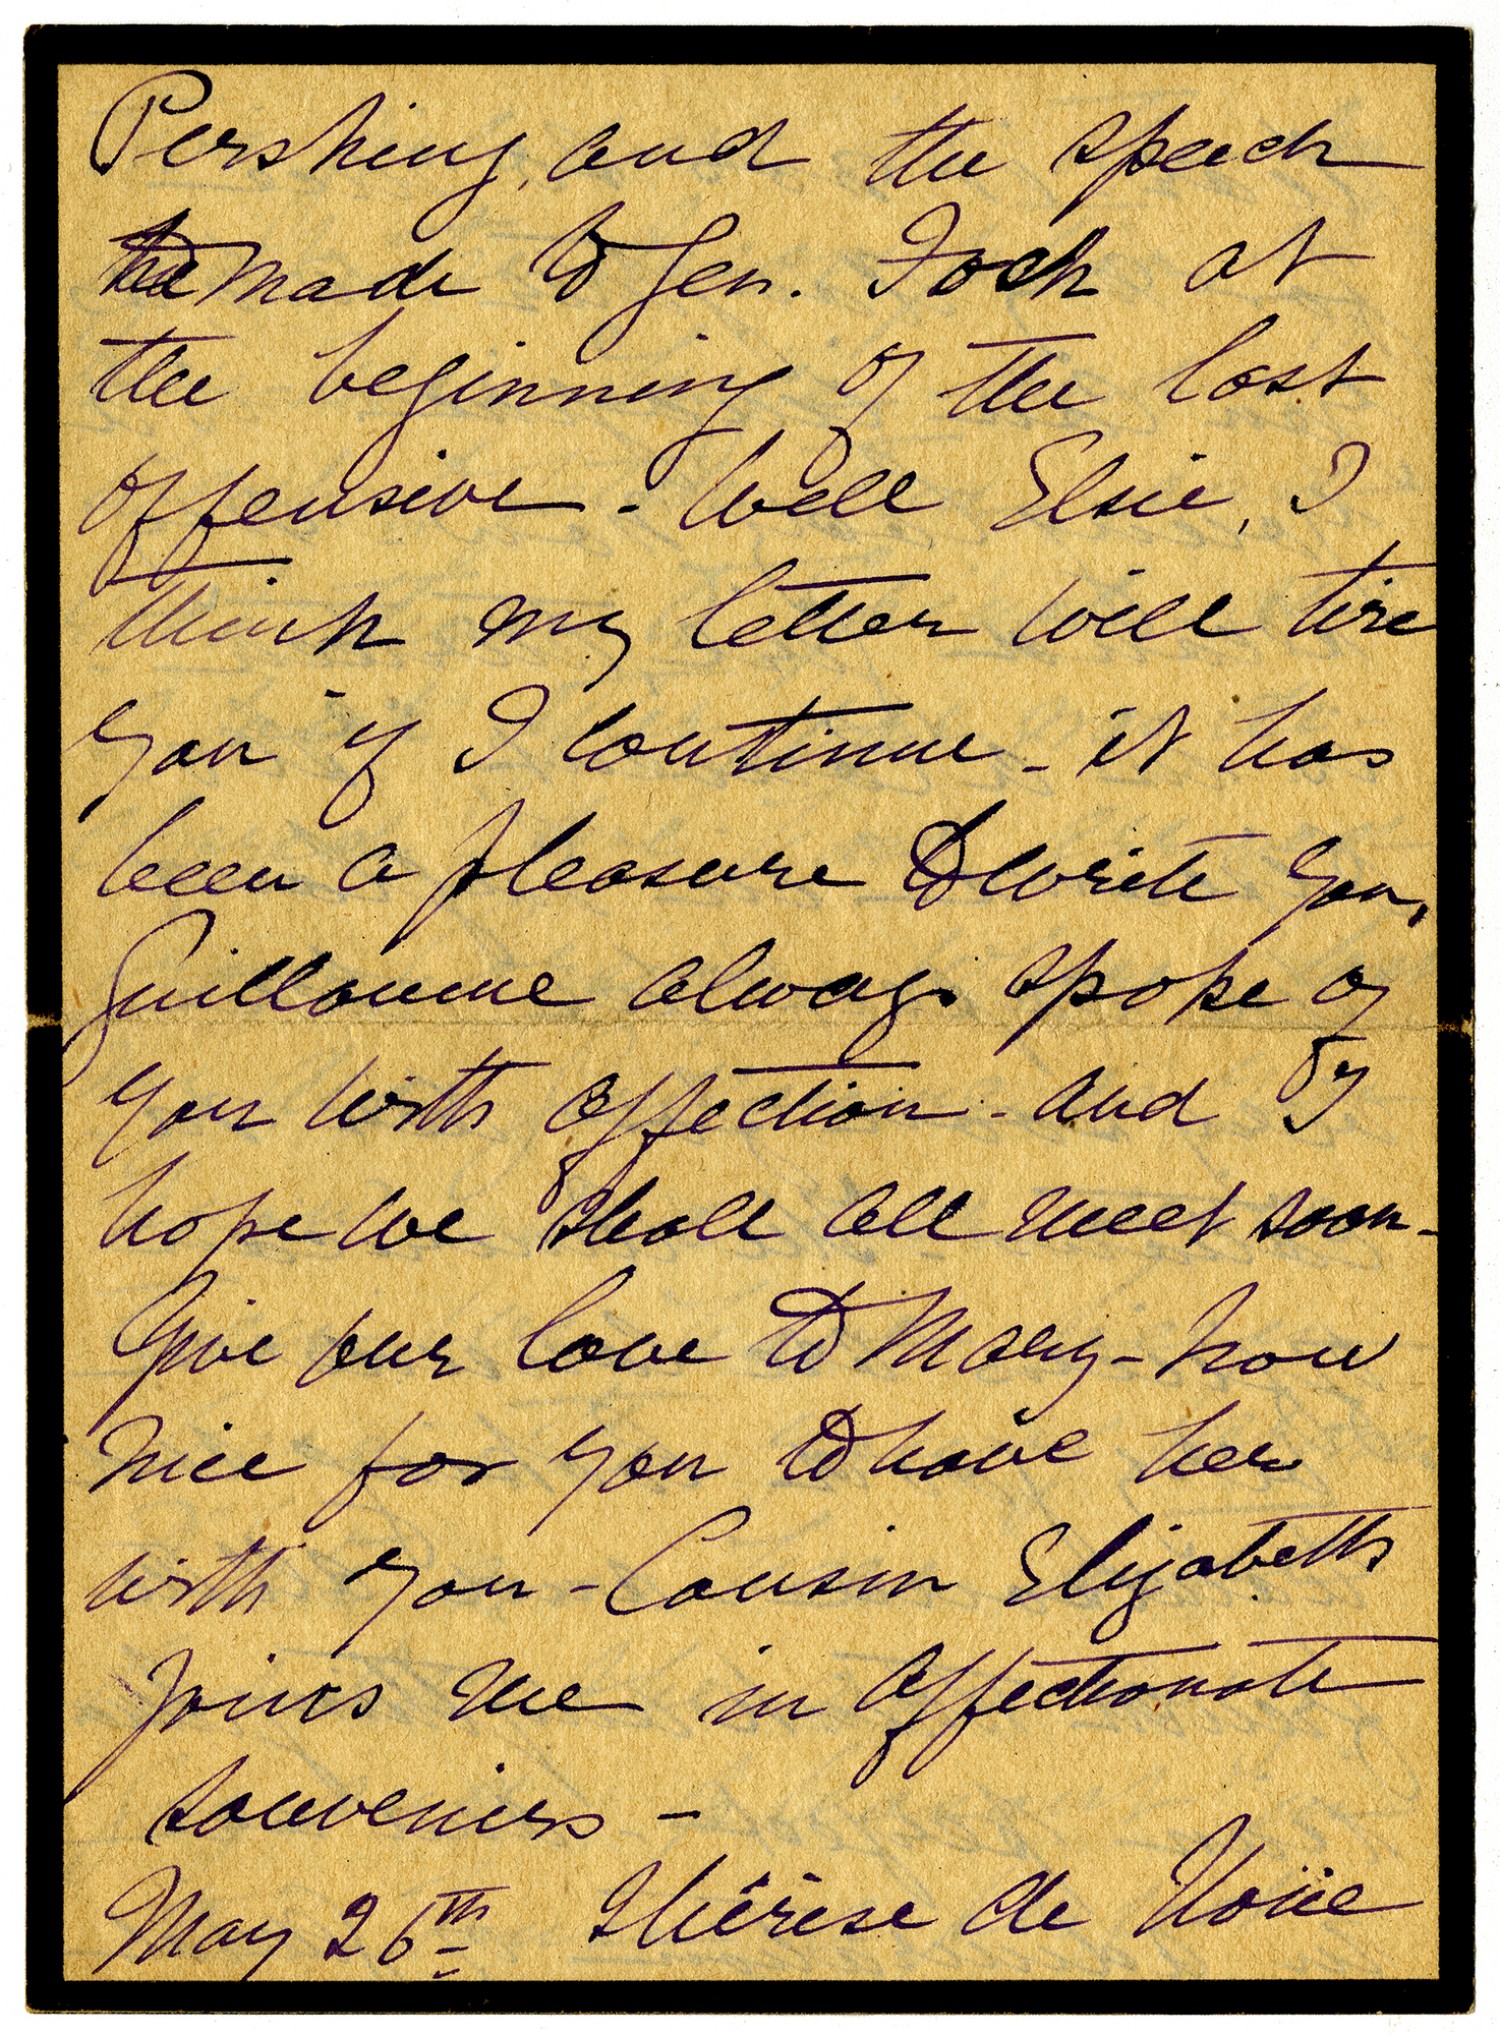 Pershing, and the speech
he made to Gen. Foch at
the beginning of the last
offensive - Well Elsie, I
think my letter will tire
you if I continue - it has
been a pleasure to write you,
Guillaume always spoke of
you with affection - and I
hope we shall all meet soon -
Give our love to Mary - how
nice for you to have her
with you - Cousin Elizabeth
joins me in affectionate
souvenirs -
May 26th Thérèse de